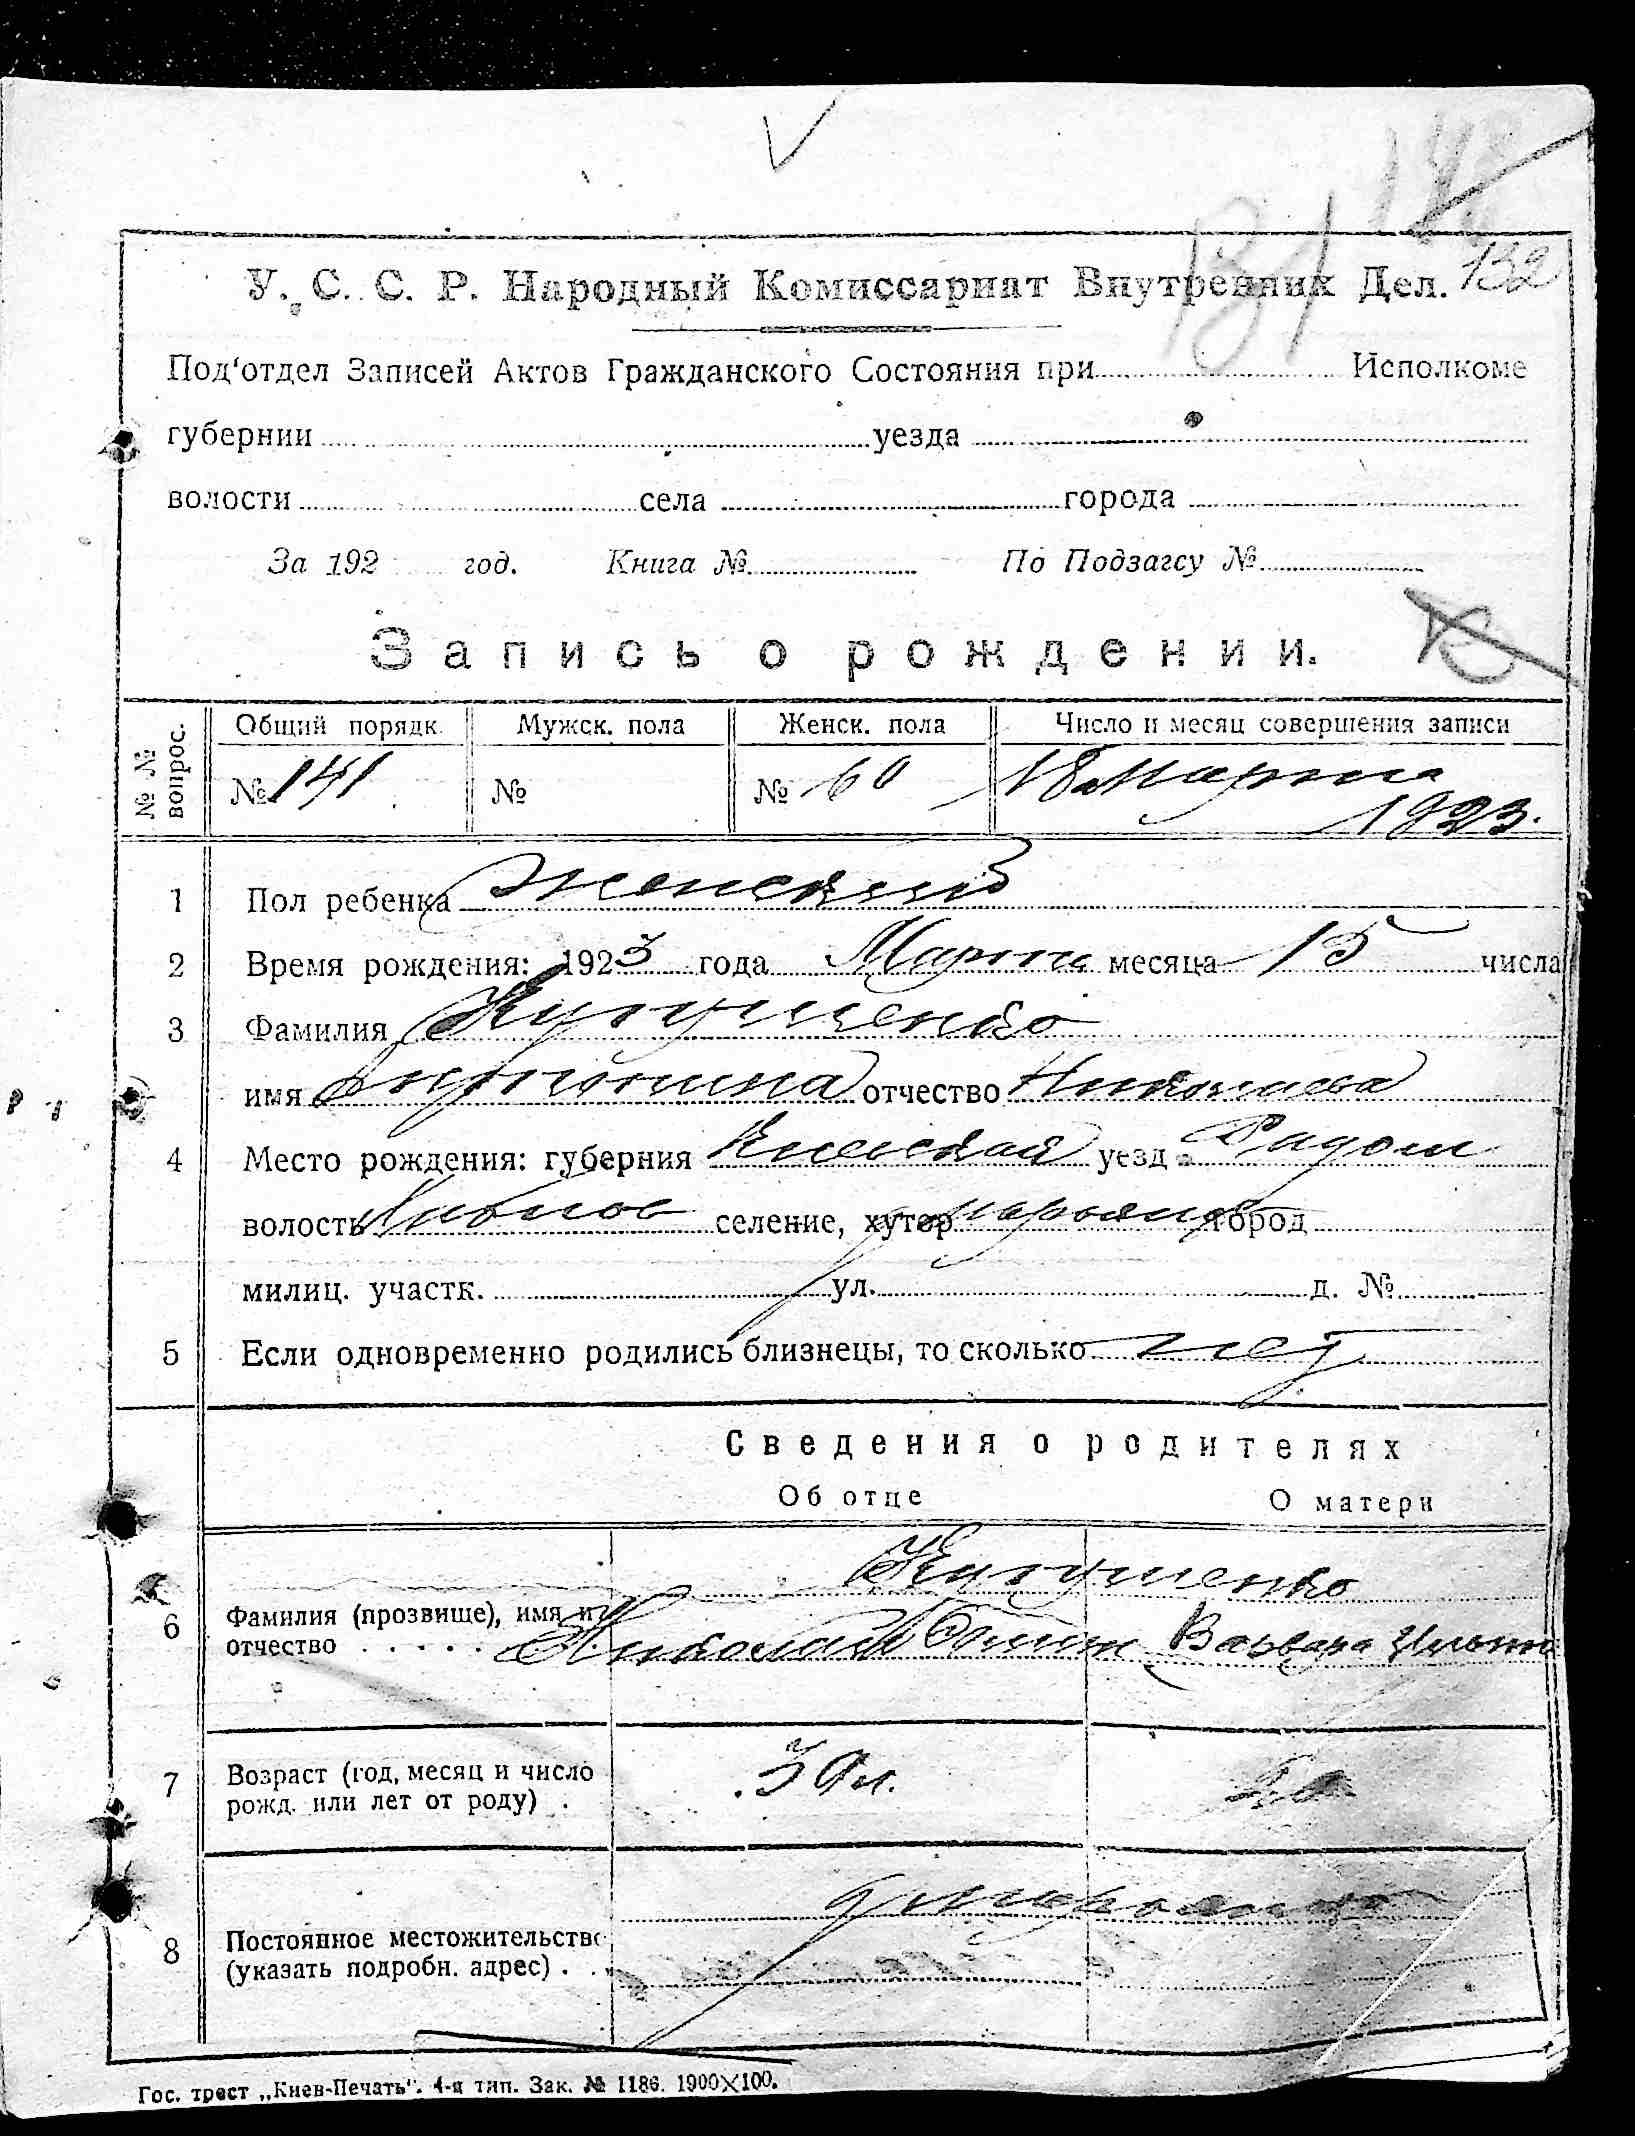 131
132
У. С. С. Р. Народный Комиссариат Внутренних Дел.
Под'отдел Записей Актов Гражданского Состояния при Исполкоме
губернии уезда
волости села города
За 192 год. Книга № По Подзагсу №
Запись о рождении.
№ № вопрос. Общий порядк. Мужск. пола Женск. пола Число и месяц совершения записи
№ 141 № № 60 18 Марта
1923.
1 Пол ребенка женский
2 Время рождения: 1923 года Марта месяца 15 числа
3 Фамилия
имя отчество Николаева
4 Место рождения: губерния Киевская уезд Радом
волость селение, хутор город
милиц. участк. ул. д. №
5 Если одновременно родились близнецы, то сколько нет
Сведения о родителях
Об отце О матери
6 Фамилия (прозвище), имя и
отчество . . . . . Николай Варвара
7 Возраст (год, месяц и число
рожд. или лет от роду) .
8 Постоянное местожительство
(указать подробн. адрес) . .
Гос. трест „Киев-Печать". 4-я тип. Зак. № 1186. 1900×100.